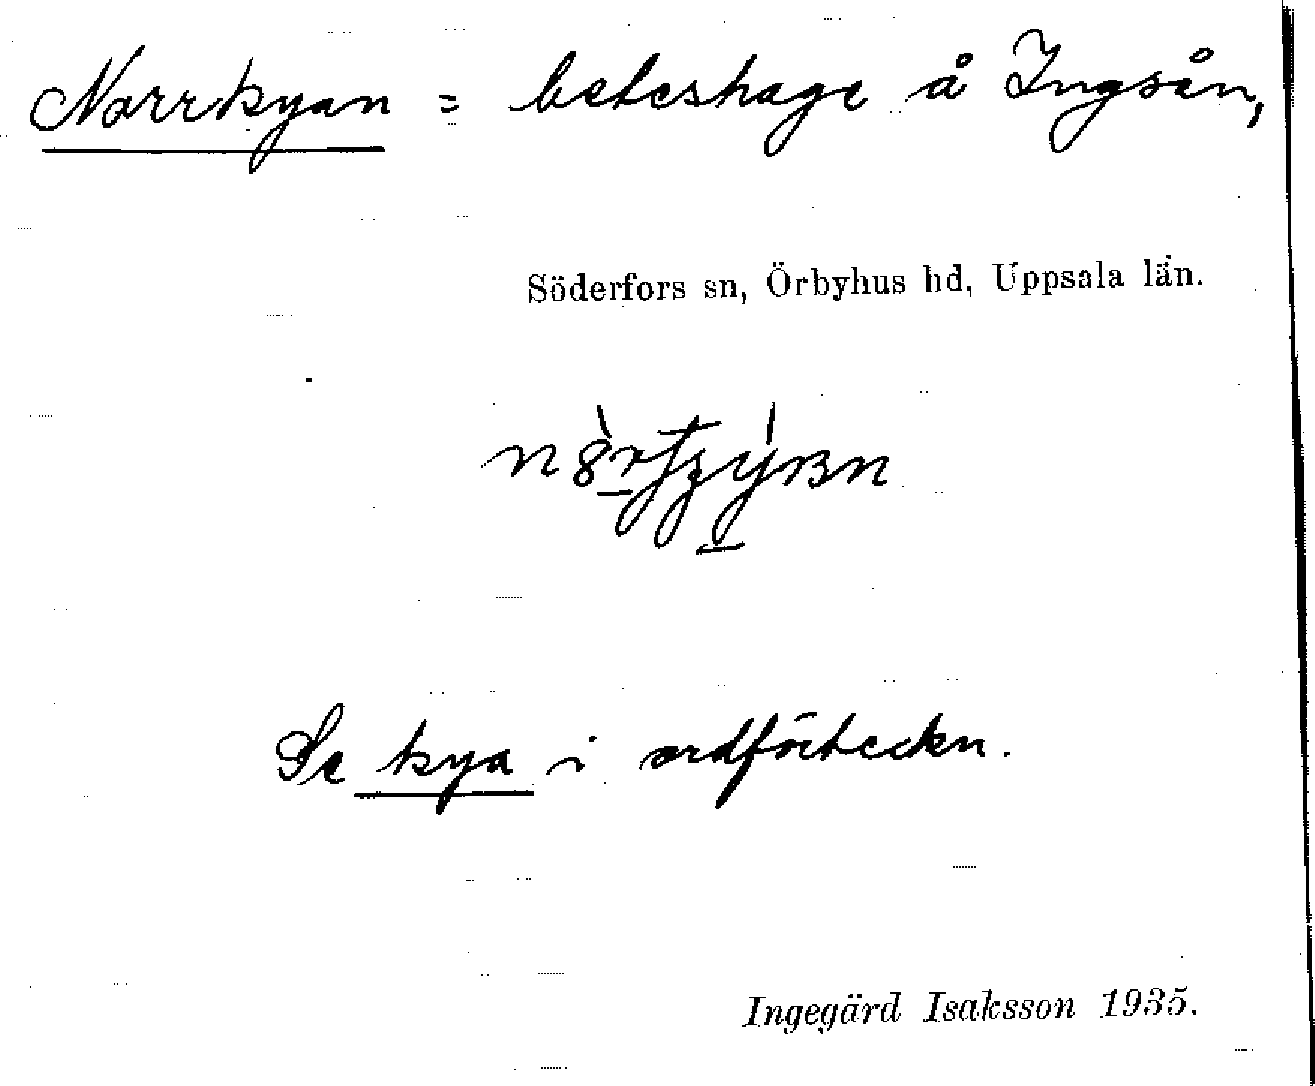 Norrkyan = beteshage å Ingsån,
Söderfors sn, Örbyhus hd, Uppsala län.
Se kya i ordförteckn.
Ingegärd Isaksson 1935.